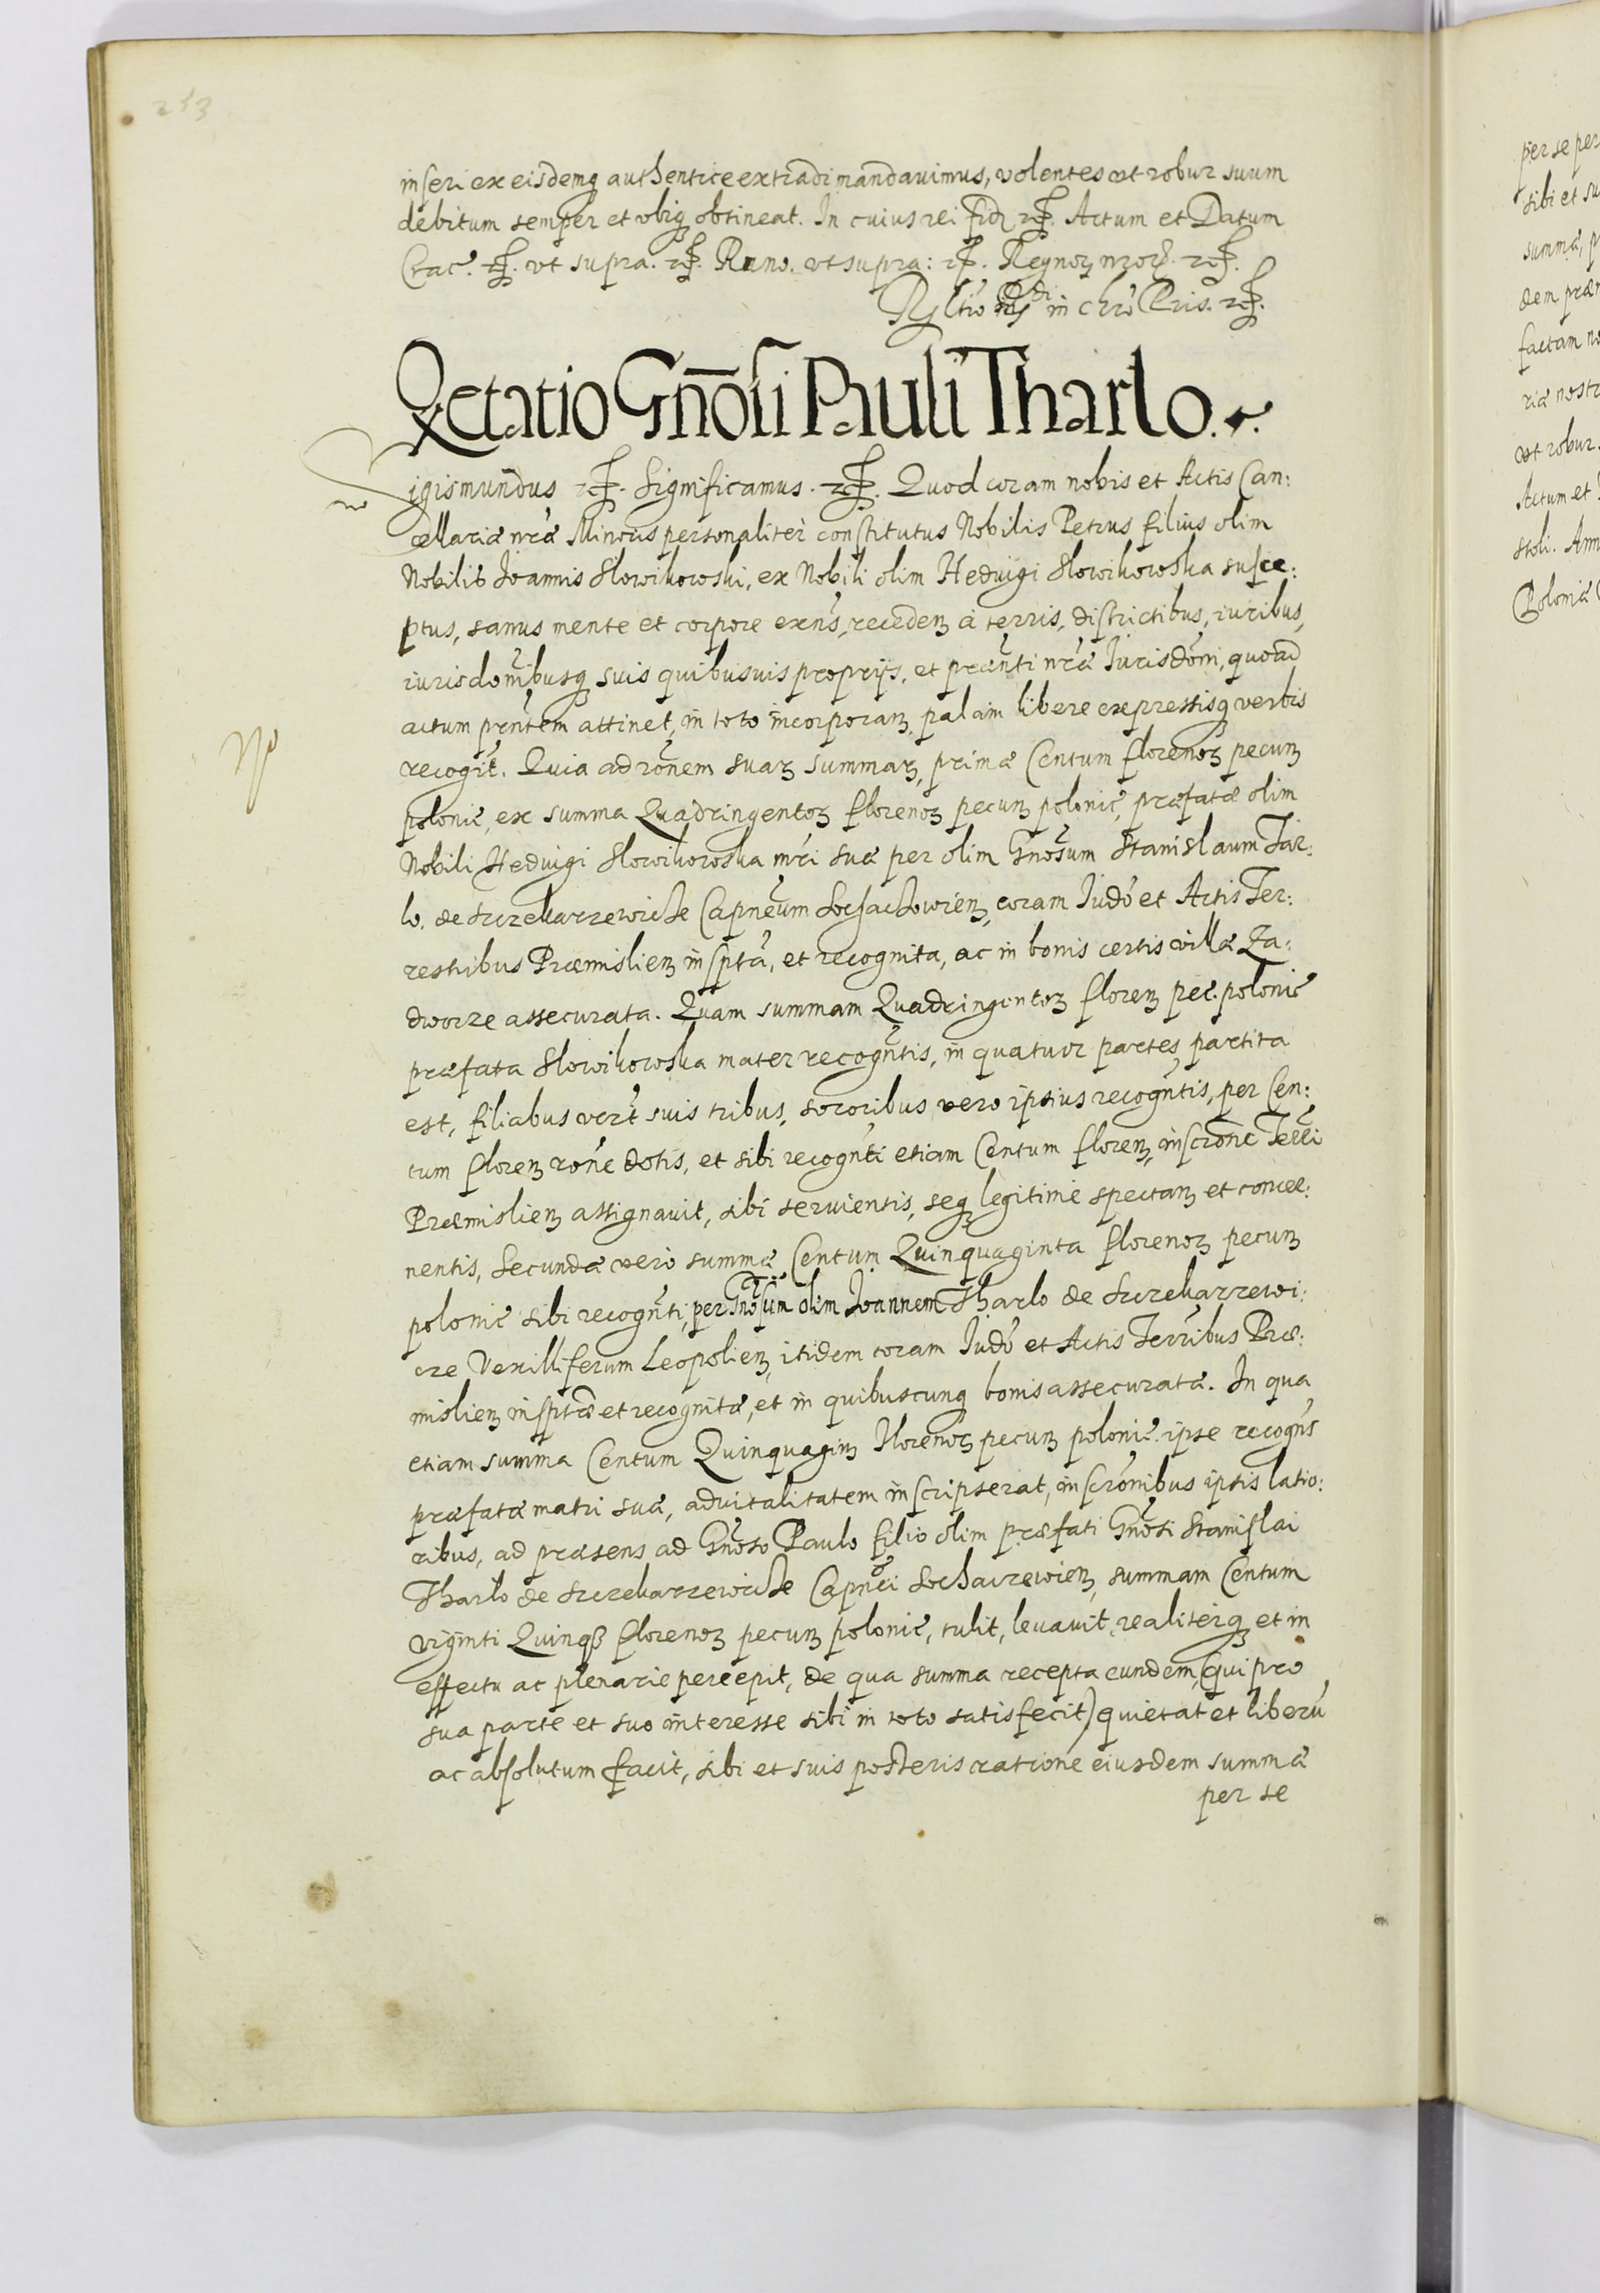 253
inseri ex eisdemq authentice extradi mandavimus, volentes ut robur suum
debitum semper et ubiq obtineat. In cuius rei fid etc. Actum et Datum
Crac. etc. ut supra. etc. Anno. ut supra: etc. Regnor nror. etc.
Rltio in chro Pris. etc.
Qetatio Gnosi Pauli Tharlo.
Sigismundus etc. Significamus. etc. Quod coram nobis et Actis Can:
cellariæ nræ Minoris personaliter constitutus Nobilis Petrus filius olim
Nobilis Joannis Slowikowski, ex Nobili olim Hedvigi Slowikowska susce:
ptus, sanus mente et corpore exns, recedem à terris, districtibus, iuribus,
iurisdonibusq suis quibusvis proprijs, et præsnti nræ Jurisdoni, quoad
actum prntem attinet, in toto incorporam, palam libere expressisq verbis
recogt. Quia ad ronem suar summar, primæ Centum florenor pecun
polonic, ex summa Quadringentor florenor pecun polonic, præfatæ olim
Nobili Hedvigi Slowikowska mri suæ per olim Gnosum Stanislaum Tar:
lo, de Sczekarzewicze Capneum Sochaczowien, coram Judo et Actis Ter:
restribus Præmislien inscpta, et recognita, ac in bonis certis villæ Za:
dworze assecurata. Quam summam Quadringentor floren pec. polonic
præfata Slowikowska mater recogntis, in quatuor partes partita
est, filiabus vert suis tribus, sororibus vero ipsius recogntis, per Cen:
tum floren rone dotis, et sibi recognti etiam Centum floren, inscrone Terri
Præmislien assignavit, sibi servientis, seq legitime spectan et concer:
nentis, Secundæ vero summæ Centum Quinquaginta florenor pecun
polonic sibi recognti, per Gnosum olim Joannem Tharlo de Sczekarzewi:
cze Vexilliferum Leopolien, itidem coram Judo et Actis Terribus Præ:
mislien inscptæ et recognitæ, et in quibuscunq bonis assecuratæ. In qua
etiam summa Centum Quinquagin Florenor pecun polonic. ipse recogns
præfatæ matri suæ, advitalitatem inscripserat, inscronibus ipsis latio:
ribus, ad præsens ad Gnoso Paulo filio olim præfati Gnosi Stanislai
Tharlo de Sczekarzewicze Capnei Sochaczewien, summam Centum
viginti Quinq florenor pecun polonic, tulit, levavit, realiterq et in
effectu ac plenarie percepit, de qua summa recepta eundem, (qui pro
sua parte et suo interesse sibi in toto satisfecit) quietat et liberu
ac absolutum facit, sibi et suis posteris ratione eiusdem summæ
per se
per se per
sibi et su
summæ, p
dem præ
factam no
riæ nostr
ut robur
Actum et
stoli. Ann
Poloniæ